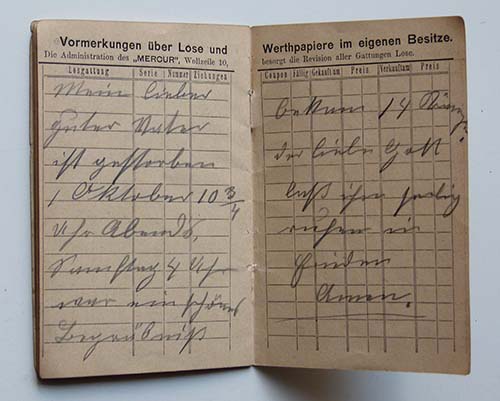 Vormerkungen über Lose und
Die Administration des „MERCUR", Wollzeile 10,
Losgattung Serie Nummer Ziehungen
Mein lieber
guter Vater
ist gestorben
1 Oktober 10 3/4
Uhr Abends,
Samstag 4 Uhr
war ein schönes
Begräbniß
Werthpapiere im eigenen Besitze.
besorgt die Revision aller Gattungen Lose.
Coupon Fällig Gekauft am Preis Verkauft am Preis
14
der liebe Gott
laß ihn selig
ruhen in
Frieden
Amen.